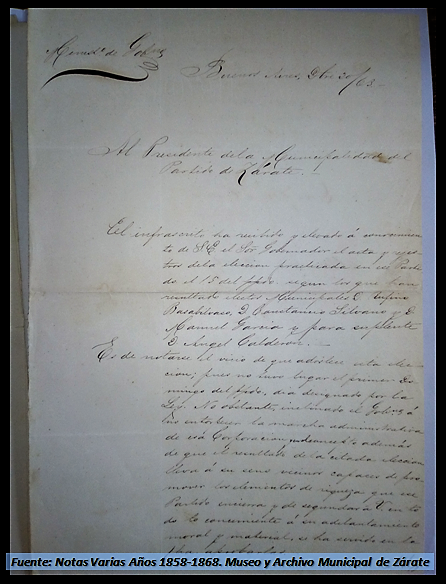 Minist.º de Gob.no
Buenos Aires, 9bre 20/63.-
Al Presidente de la Municipalidad del
Partido de Zárate.-
El infrascrito ha recibido y elevado á conocimien-
to de S.E. el Sor Gobernador el acta y rejis-
tros de la eleccion practicada en ese Parti-
do el 15 del ppdo. segun los que han
resultado electos Municipales D. Rufino
Basabilvaso, D. Constancio Silvano y D.
Manuel Garcia y para suplente
D. Angel Calderon.-
Es de notarse el vicio de que adolece esta elec-
cion; pues no tuvo lugar el primer Do-
mingo del ppdo, dia designado por la
Ley. No obstante, inclinado el Gob.no á
no entorpecer la marcha administrativa
de esa Corporacion, y además
de que el resultado de la citada eleccion
lleva á su seno vecinos capaces de pro-
mover los elementos de riqueza que ese
Partido encierra y de segundar á E. en to-
do lo concerniente á su adelantamiento
moral y material, se ha servido en la
fha aprobarlas
Fuente: Notas Varias Años 1858-1868. Museo y Archivo Municipal de Zárate